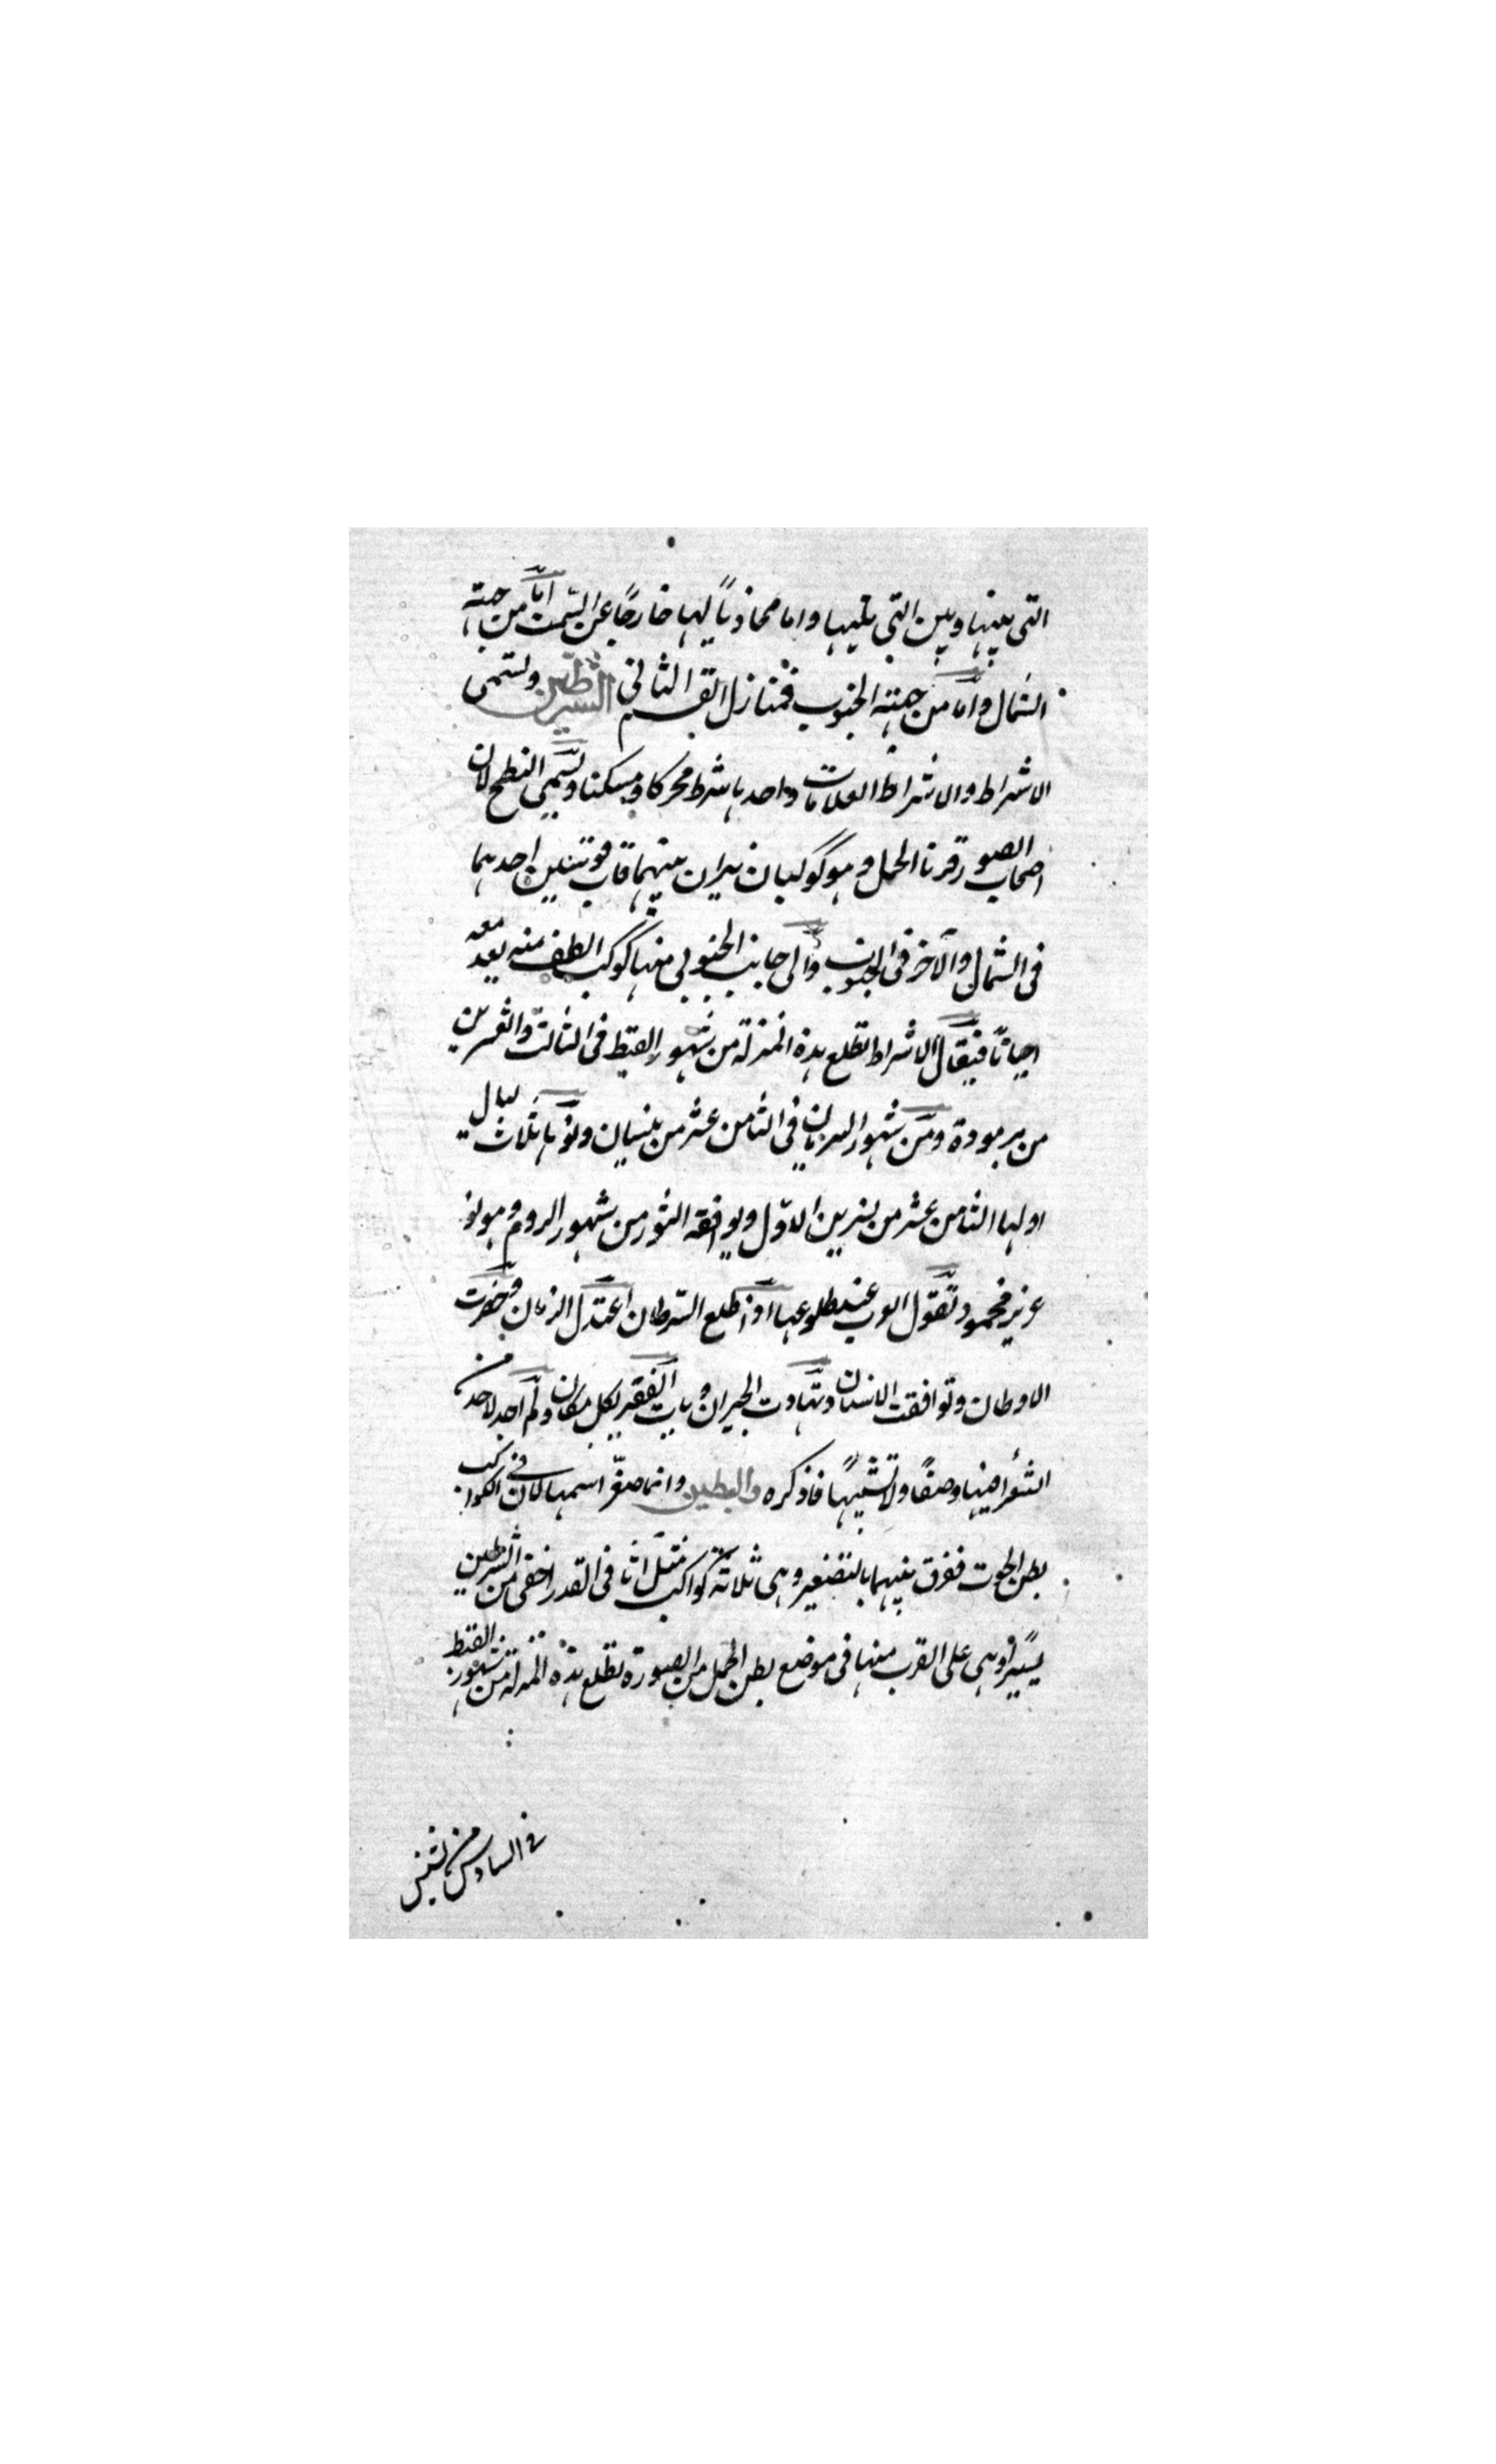 التى بينها وبين التى تليها واما محاذيًا لها خارجًا عن السمت اما من جهة
الشمال واما من جهة الجنوب فمنازل القسم الثانى الشرطين وتسمى
الاشراط والاشراط العلامات واحدها شرط محركا ومسكنا وتسمى النطح لان
اصحاب الصور قرنا الحمل وهو كوكبان نيران بينهما قاب قوسين احدهما
فى الشمال والآخر فى الجنوب والى جانب الجنوبى منها كوكب الطف منه يعد معه
احيانًا فيقال الاشراط تطلع هذه المنزلة من شهور القبط فى الثالث والعشرين
من برمودة ومن شهور السريان فى الثامن عشر من نيسان ونؤها ثلاث ليال
اولها الثامن عشر من تشرين الاول ويوافقه الثور من شهور الروم وهو نؤ
عزيز محمود تقول العرب عند طلوعها اذا طلع الشرطان اعتدل الزمان وحضرت
الاوطان وتوافقت الانسان وتهادت الجيران وبات الفقير بكل مكان ولم اجد لاحد من
الشعراء فيها وصفًا ولا تشبيهًا فاذكره والبطين وانما صغّر اسمها لان فى الكواكب
بطن الحوت ففرق بينهما بالتصغير وهى ثلاثة كواكب مثل اثافى القدر اخفى من الشرطين
يسيرًا وهى على القرب منها فى موضع بطن الحمل من الصورة تطلع هذه المنزلة من شهور القبط
فى السادس من بشنس